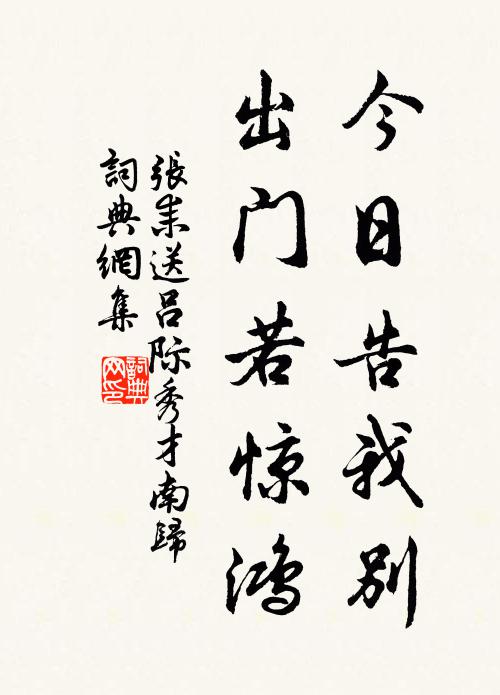 今日告我别
出门若惊鸿
張耒送吕际秀才南歸
詞典網集
詞典
网印